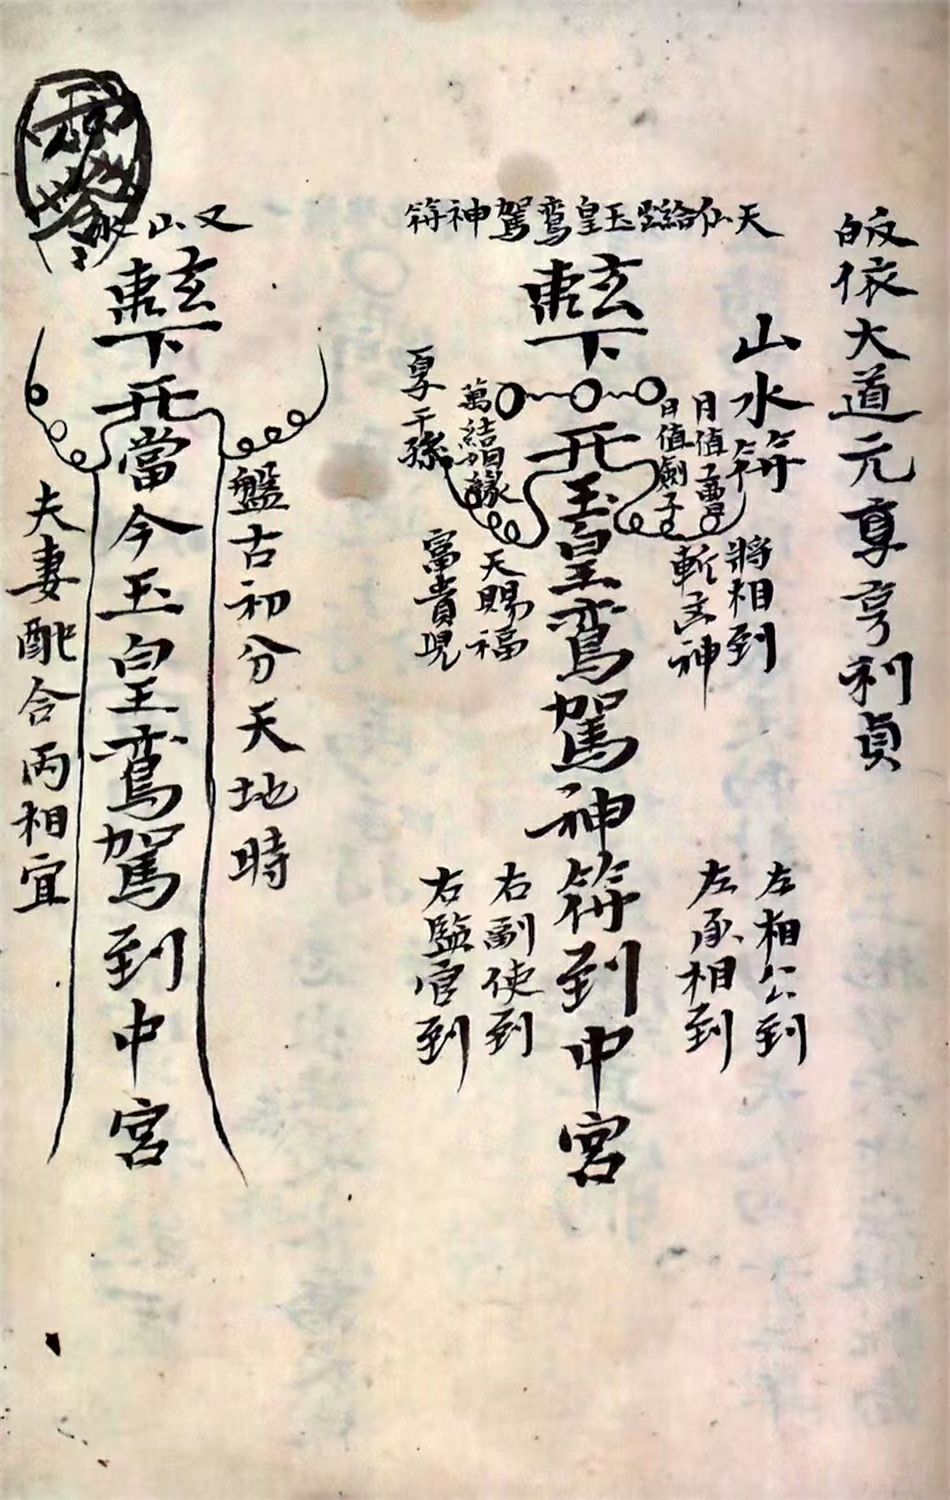 皈依大道元尊亨利貞
天仙給照玉皇鸞駕神符
山水符
下
开玉皇鸞駕神符到中宮
月值
日值
將相到
斬凶神
左相公到
左丞相到
萬結緣
享千孫
天賜福
富貴現
右副使到
右監官到
又山
下
开當今玉皇鸞駕到中宮
盤古初分天地時
夫妻配合两相宜